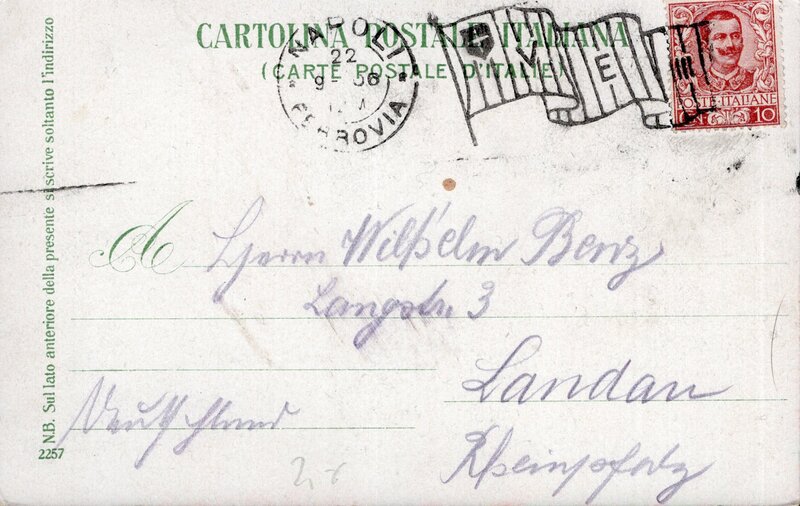 CARTOLINA POSTALE ITALIANA
(CARTE POSTALE D'ITALIE)
NAPOLI
22
9- 06
FERROVIA
V E
POSTE ITALIANE
CENT 10
A Herrn Wilhelm Benz
Langstr. 3
Landau
Deutschland
Rheinpfalz
N.B. Sul lato anteriore della presente si scrive soltanto l'indirizzo
2257